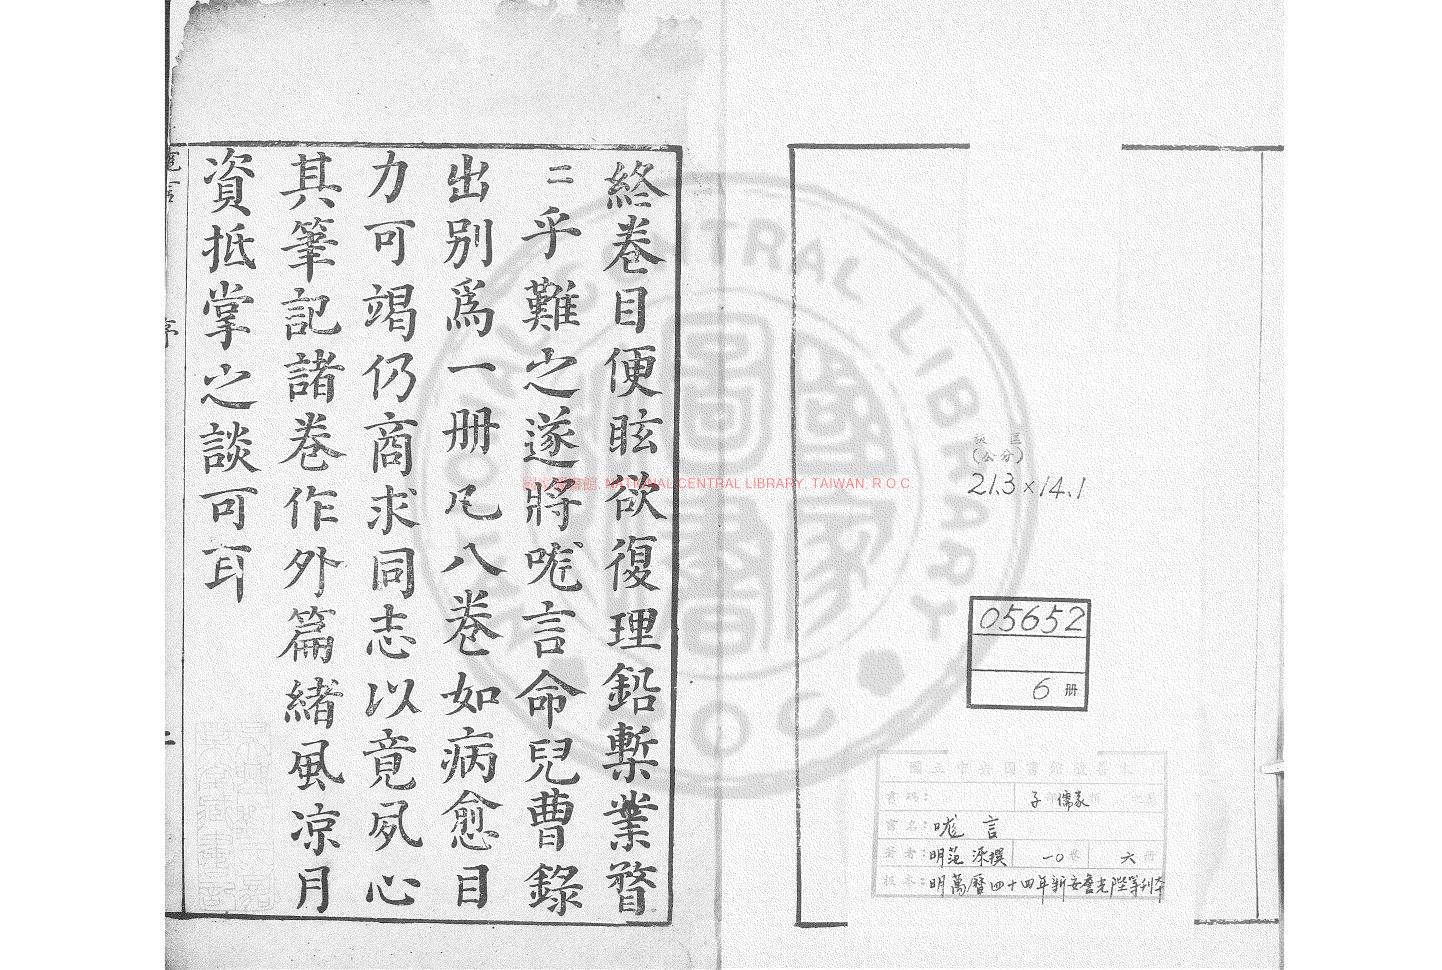 版匡
(公分)
21.3×14.1
05652
6 册
國立中央圖書館敬善本
書碼：
子 儒家 類
書名：咙言
著者：明范 淶撰 一〇卷 六冊
版本：明萬曆四十四年新安詹光陛等刊本
終卷目便眩欲復理鉛槧業瞀
二乎難之遂將咙言命兒曹錄
出别爲一册凡八卷如病愈目
力可竭仍商求同志以竟夙心
其筆記諸卷作外篇緒風凉月
資抵掌之談可耳
序
NATIONAL CENTRAL LIBRARY, TAIWAN, R.O.C.